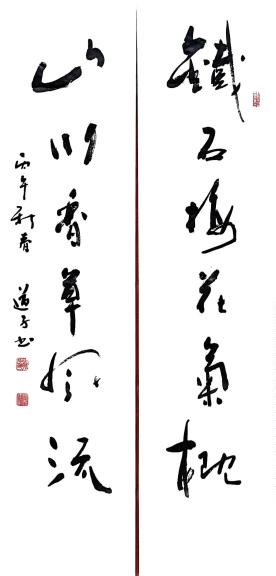 鐵石梅花氣概
山川香草風流
丙午新春 道子书